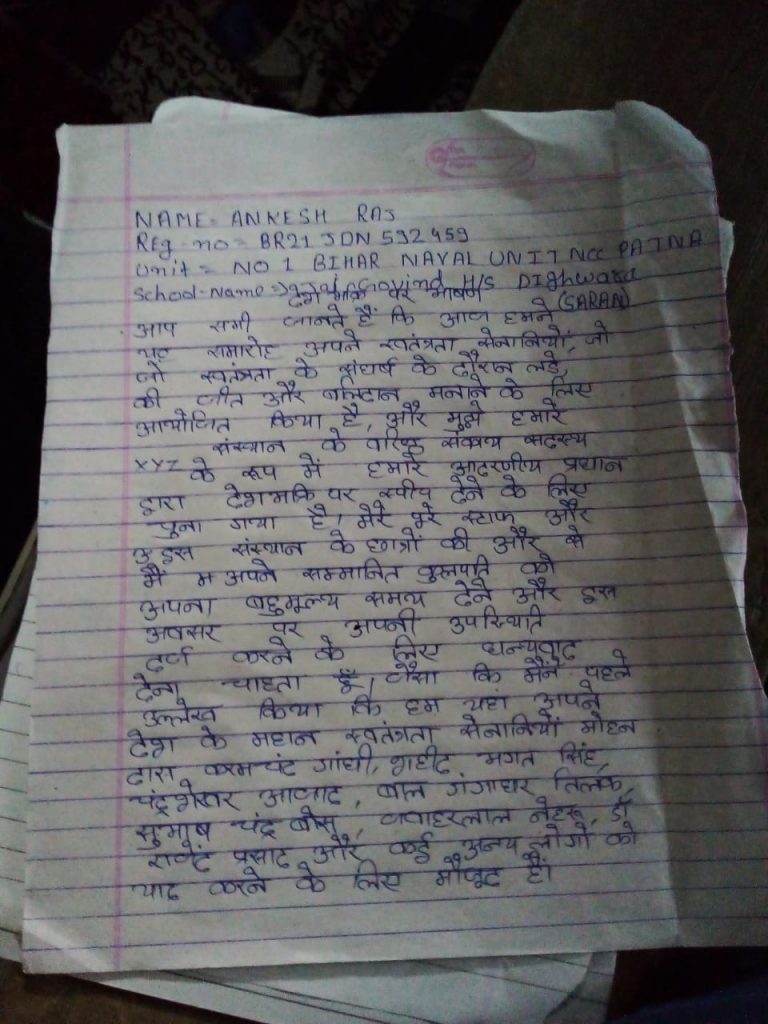 NAME = ANKESH RAJ
Reg - no = BR21 JDN 592459
Unit = NO 1 BIHAR NAVAL UNIT NCC PATNA
School-Name = Govind H/S Dighwara
(SARAN)
देश भक्ति पर भाषण
आप सभी जानते हैं कि आज हमने
यह समारोह अपने स्वतंत्रता सेनानियों, जो
जो स्वतंत्रता के संघर्ष के दौरान लड़े,
की जीत और बलिदान मनाने के लिए
आयोजित किया है, और मुझे हमारे
संस्थान के वरिष्ठ संकाय सदस्य
XYZ के रूप में हमारे आदरणीय प्रधान
द्वारा देशभक्ति पर स्पीच देने के लिए
चुना गया है। मेरे पूरे स्टाफ और
इस संस्थान के छात्रों की और से
मैं म अपने सम्मानित कुलपति को
अपना बहुमूल्य समय देने और इस
अवसर पर अपनी उपस्थिति
दर्ज करने के लिए धन्यवाद
देना चाहता हूँ, जैसा कि मैंने पहले
उल्लेख किया कि हम यहां आपने
देश के महान स्वतंत्रता सेनानियों मोहन
दारा करमचंद गांधी, शहीद भगत सिंह,
चंद्रशेखर आजाद, बाल गंगाधर तिलक,
सुभाष चंद्र बोस, जवाहरलाल नेहरू, डॉ
राजेंद्र प्रसाद और कई अन्य लोगों को
याद करने के लिए मौजूद हैं।